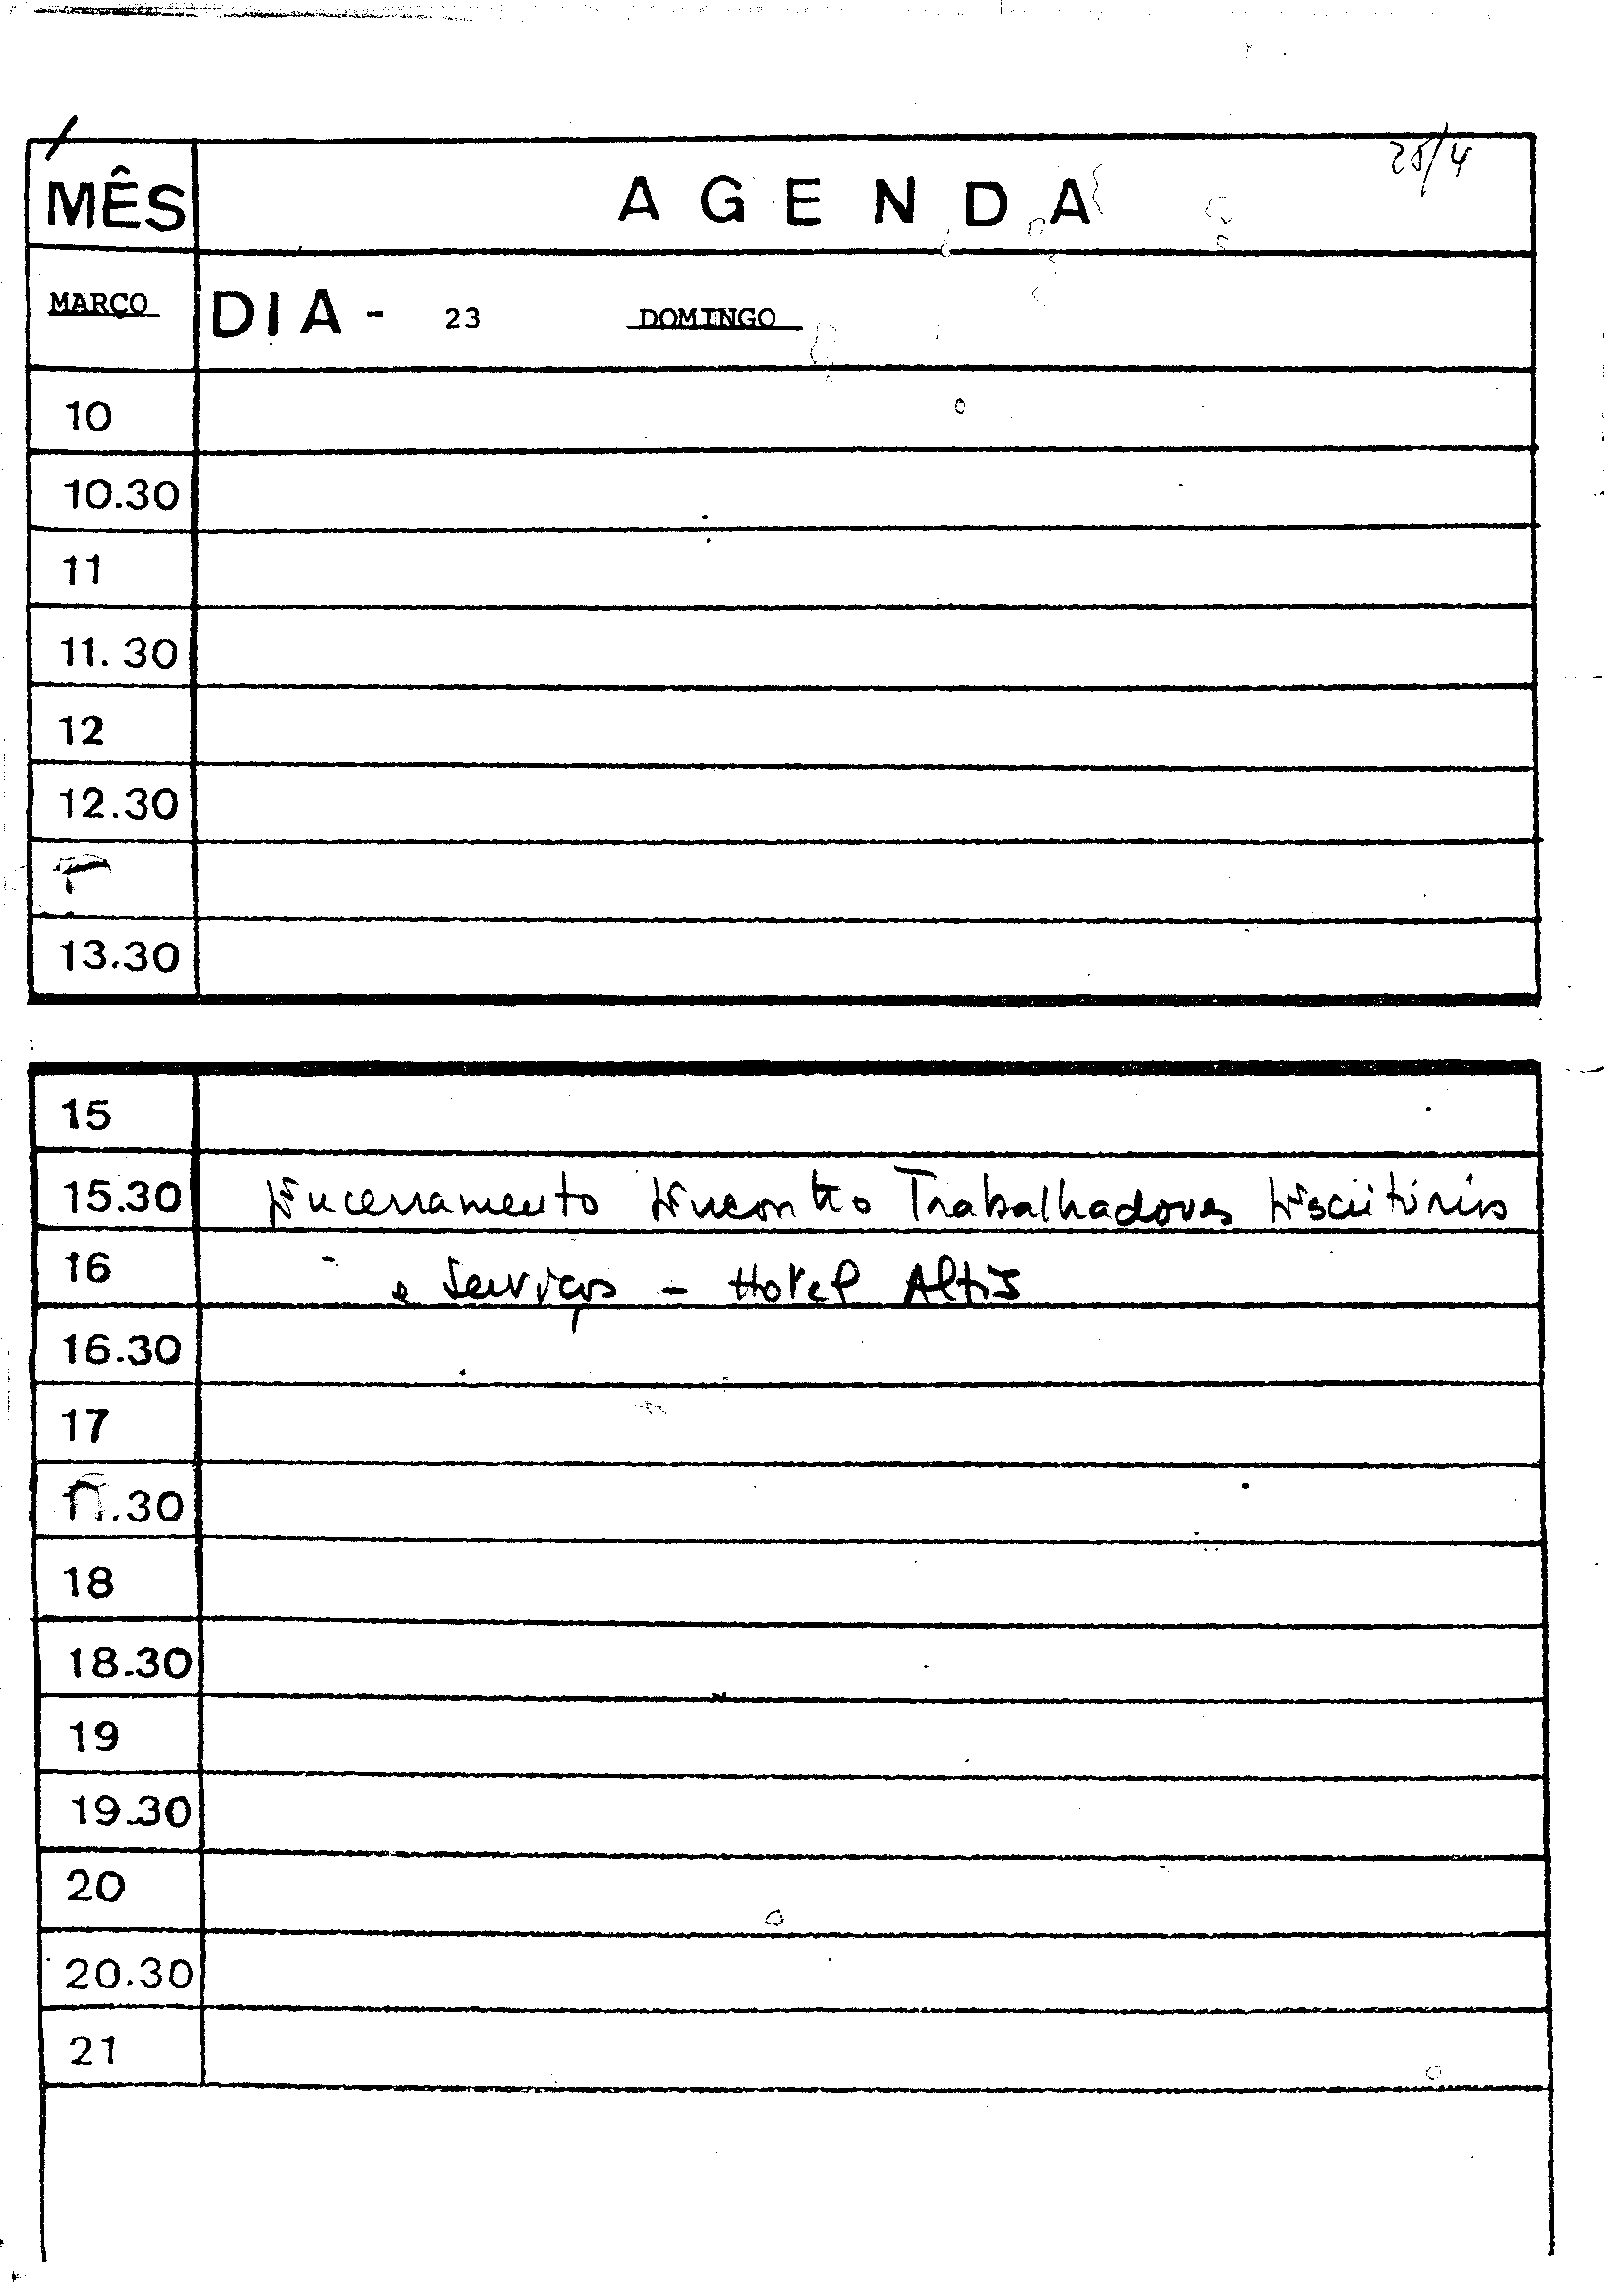 25/4
MÊS AGENDA
MARÇO DIA - 23 DOMINGO
10
10.30
11
11.30
12
12.30
13.30
15
15.30 Encerramento Encontro Trabalhadores Escritórios
16 e Serviços - Hotel Altis
16.30
17
17.30
18
18.30
19
19.30
20
20.30
21